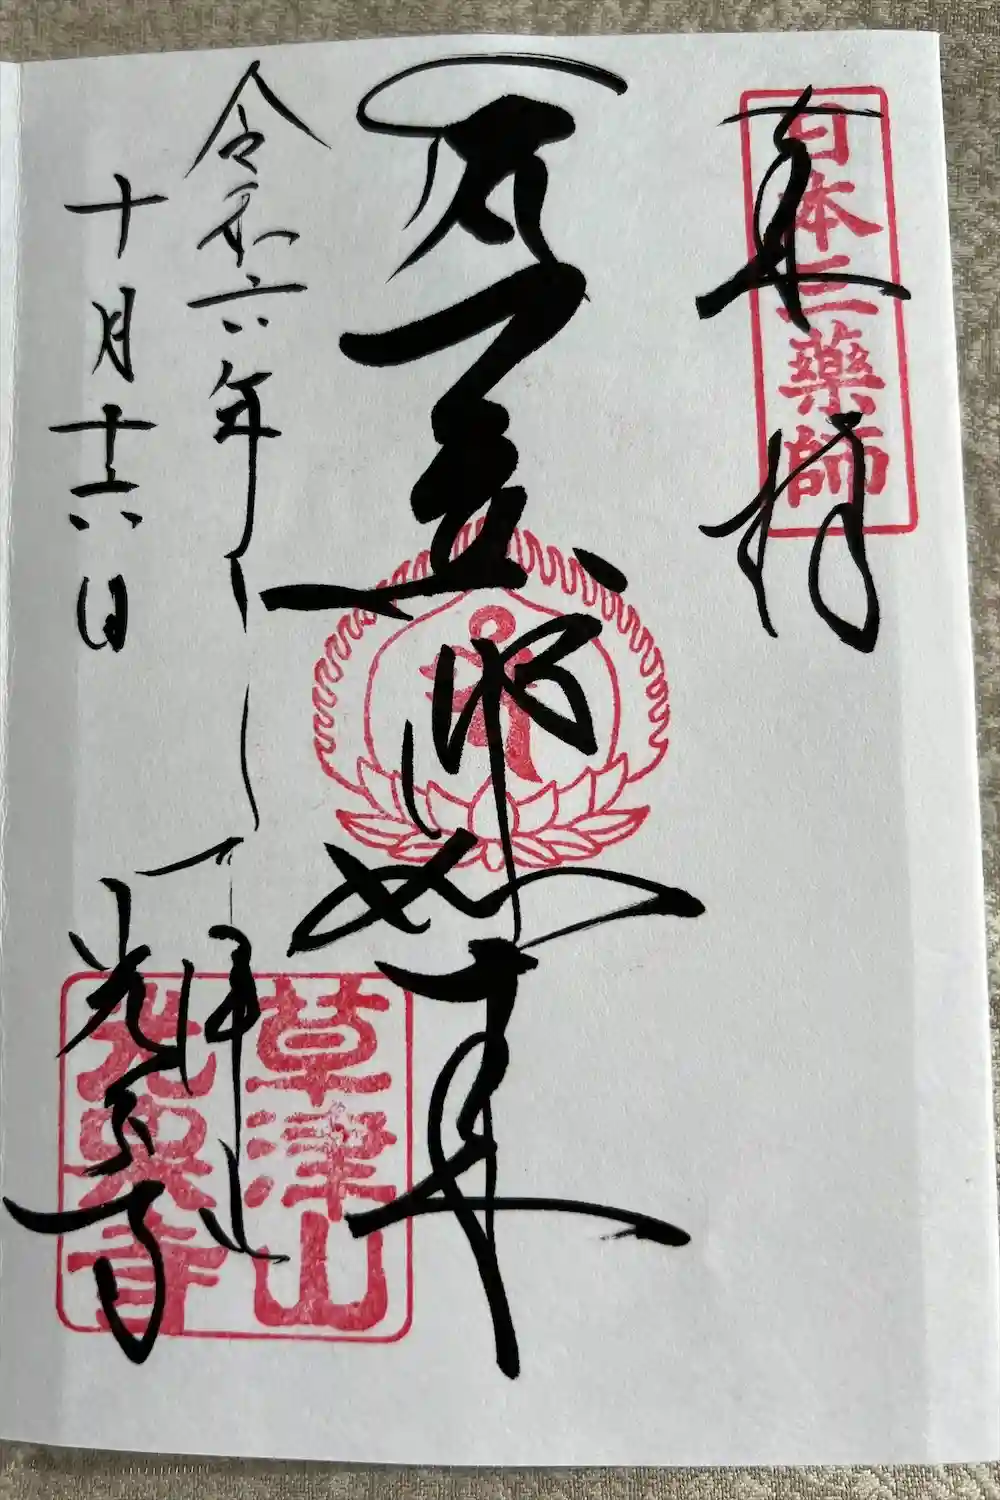 奉拝
日本三藥師
師如来
令和六年
十月十六日
草津山
光泉寺
光泉寺